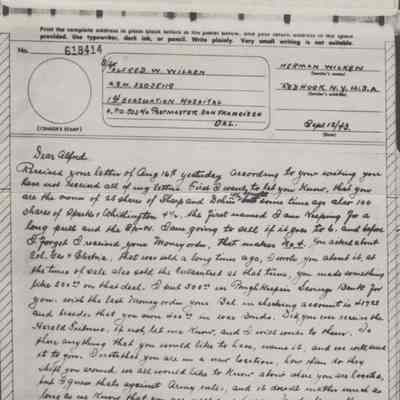 Print the complete address in plain block letters in the panel below, and your return address in the space
provided. Use typewriter, dark ink, or pencil. Write plainly. Very small writing is not suitable.
No. 618414
ALFRED W. WILKEN
1st EVACUATION HOSPITAL
A.P.O. POSTMASTER SAN FRANCISCO
CAL.
HERMAN WILKEN
(Sender's name)
RED HOOK N.Y. U.S.A.
(Sender's address)
Sept 12/43
(Date)
(CENSOR'S STAMP)
Dear Alfred
Received your letter of Aug 16th yesterday according to your writing you
have not received all of my letters. First I want to let you know, that you
are the owner of 25 shares of Sharp and Dohme some time ago also 100
shares of Sparks Withington 4½. The first named I am keeping for a
long pull and the Sparks I am going to sell if it goes to 6. and before
I forget I received your Money order. That makes No 4. You asked about
Col. Gas + Electric, that was sold a long time ago, I wrote you about it, at
the time of sale also sold the at that time, you made something
like on that deal. I put 500 in Poughkeepsie Savings Bank for
you. with the last Money order your Bal. in checking account is
and besides that you own in war Bonds. Did you ever receive the
Herald Tribune, if not let me know, and I will write to them. Is
there anything that you would like to have, name it, and we will send
it to you. I noticed you are in a new location, how often do they
shift you around, we all would like to know about where you are located,
but I guess thats against Army rules, and it doesn't matter much as
long as we know that you